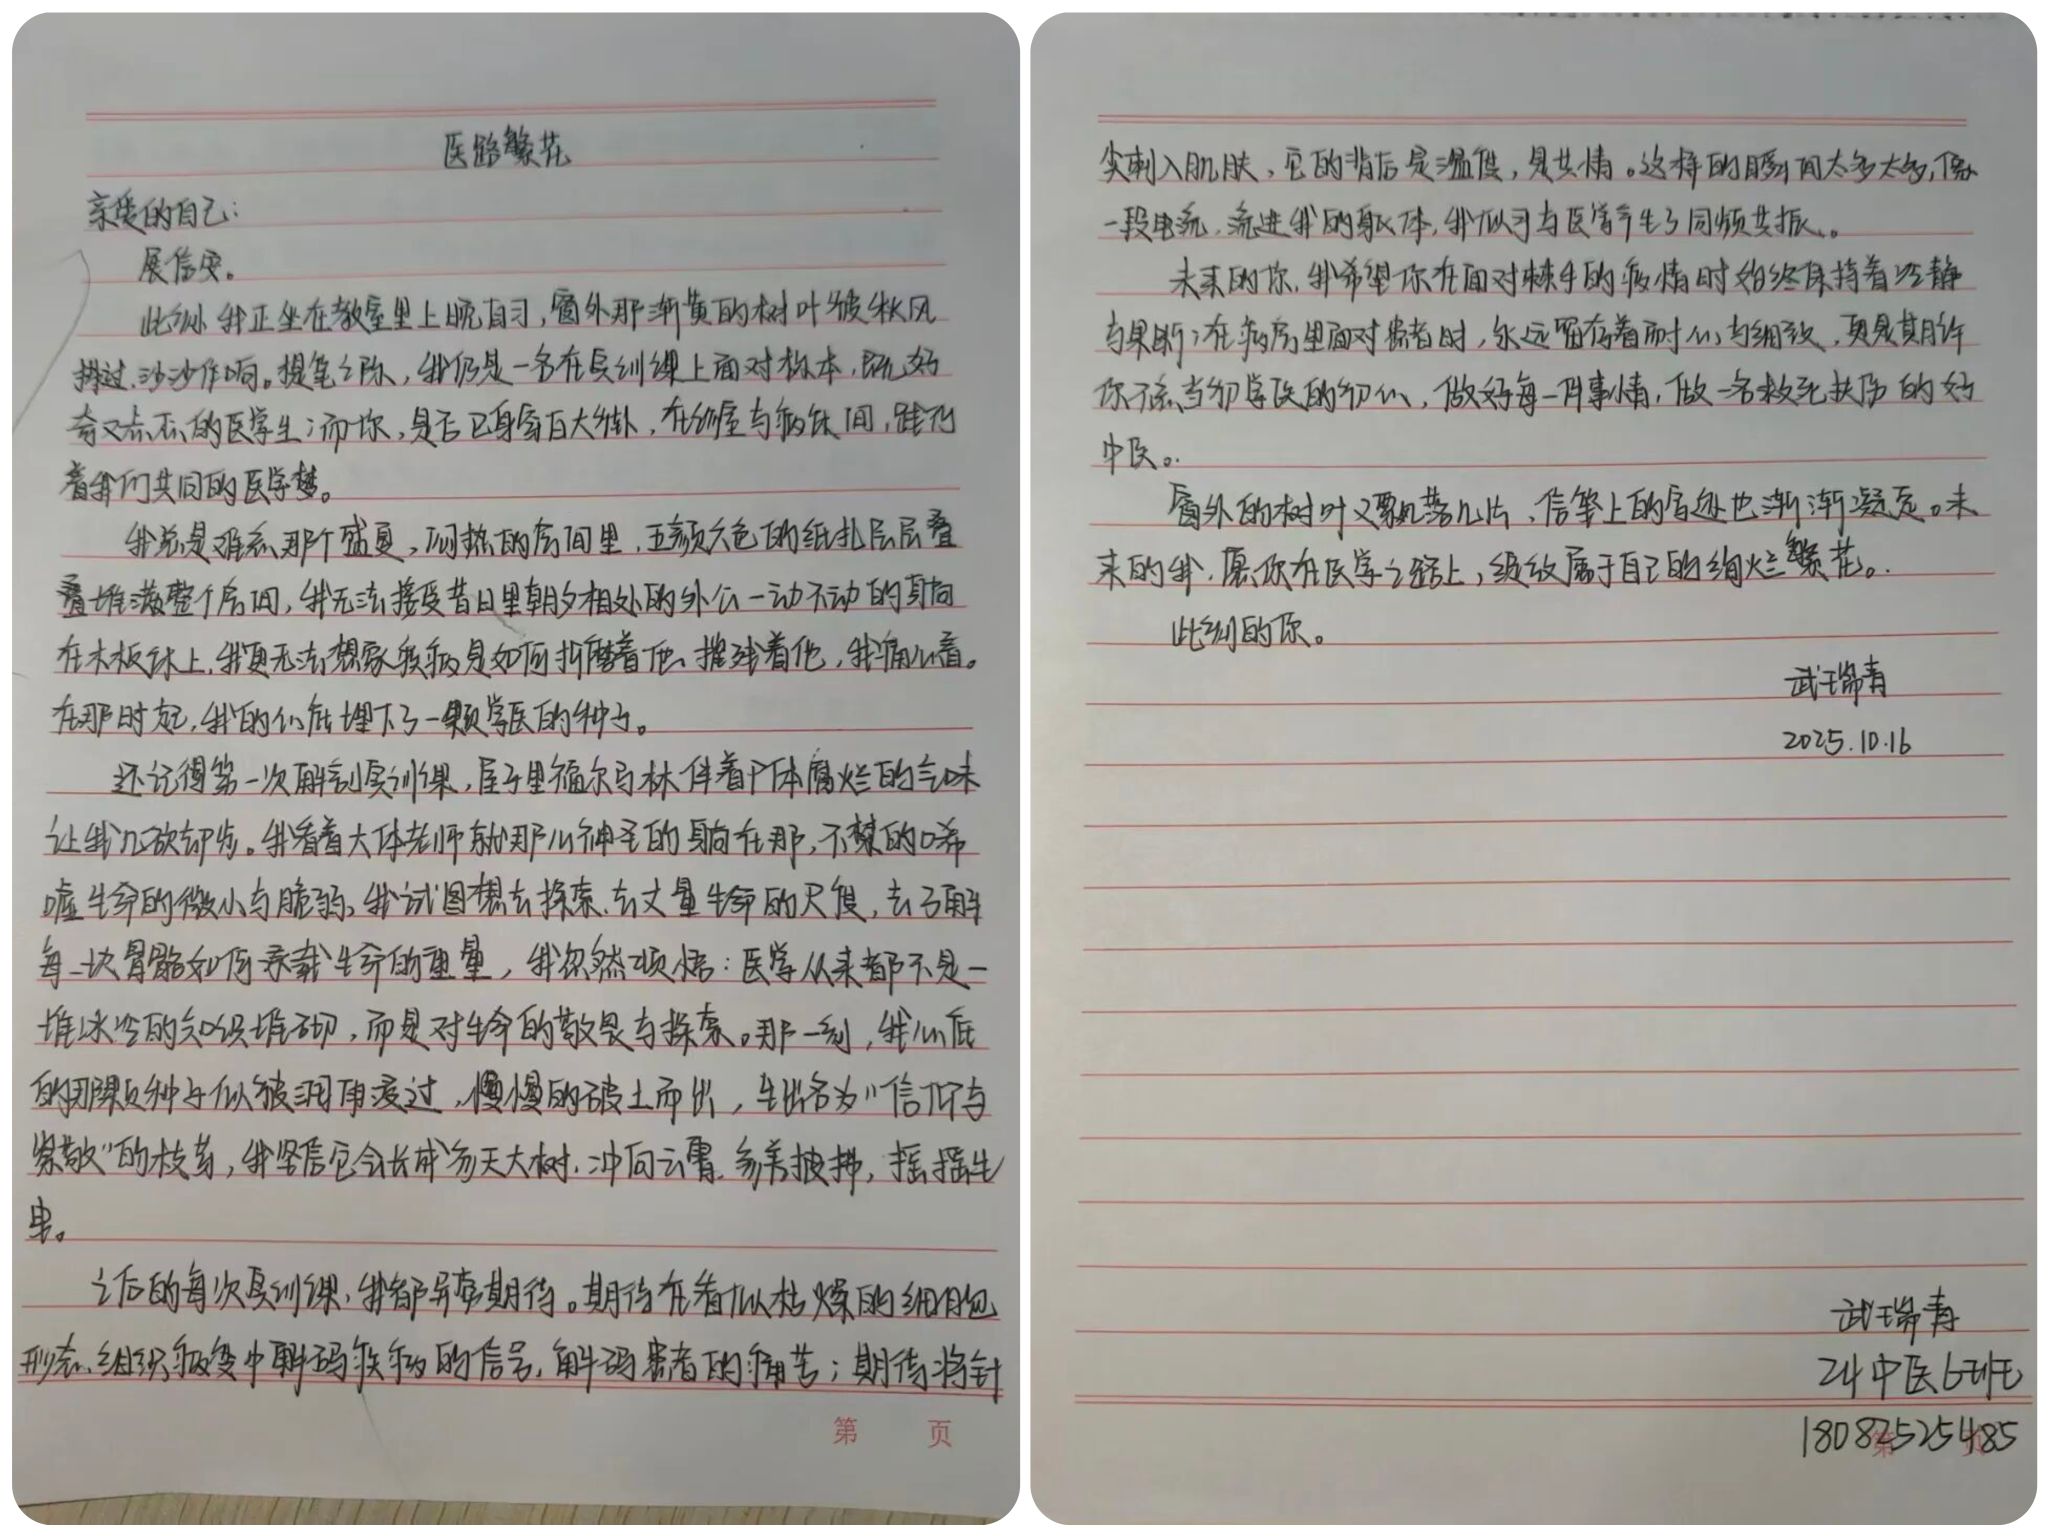 医路繁花
亲爱的自己：
展信安。
此刻我正坐在教室里上晚自习，窗外那渐黄的树叶被秋风
拂过，沙沙作响。提笔之际，我仍是一名在实训课上面对标本，既好
奇又忐忑的医学生；而你，是否已身穿白大褂，在诊室与病床间，践行
着我们共同的医学梦。
我总是难忘那个盛夏，闷热的房间里，五颜六色的纸扎层层叠
叠堆满整个房间，我无法接受昔日里朝夕相处的外公一动不动的直躺
在木板床上，我更无法想象疾病是如何折磨着他、摧残着他，我痛心着。
在那时起，我的心底埋下了一颗学医的种子。
还记得第一次解剖实训课，屋子里福尔马林伴着尸体腐烂的气味
让我几欲却步。我看着大体老师就那么神圣的躺在那，不禁的唏
嘘生命的微小与脆弱，我试图想去探索、去丈量生命的尺度，去了解
每一块骨骼如何承载生命的重量，我忽然顿悟：医学从来都不是一
堆冰冷的知识堆砌，而是对生命的敬畏与探索。那一刻，我心底
的那颗种子似被润雨浸过，慢慢的破土而出，生出名为“信仰与
崇敬”的枝芽，我坚信它会长成参天大树，冲向云霄，参差披拂，摇摇生
串。
之后的每次实训课，我都异常期待。期待在看似枯燥的细胞
形态、组织病变中解码疾病的信号，解码患者的痛苦；期待将针
尖刺入肌肤，它的背后是温度，是共情。这样的瞬间太多太多，像
一段电流，流进我的躯体，我似乎与医学产生了同频共振。
未来的你，我希望你在面对棘手的病情时始终保持着冷静
与果断；在病房里面对患者时，永远留存着耐心与细致，更是期许
你不忘当初学医的初心，做好每一件事情，做一名救死扶伤的好
中医。
窗外的树叶又飘落几片，信笺上的字迹也渐渐凝固。未
来的我，愿你在医学之路上，绽放属于自己的绚烂繁花。
此刻的你。
武瑞青
2025.10.16
武瑞青
24中医6班
18082525485
第 页
第 页